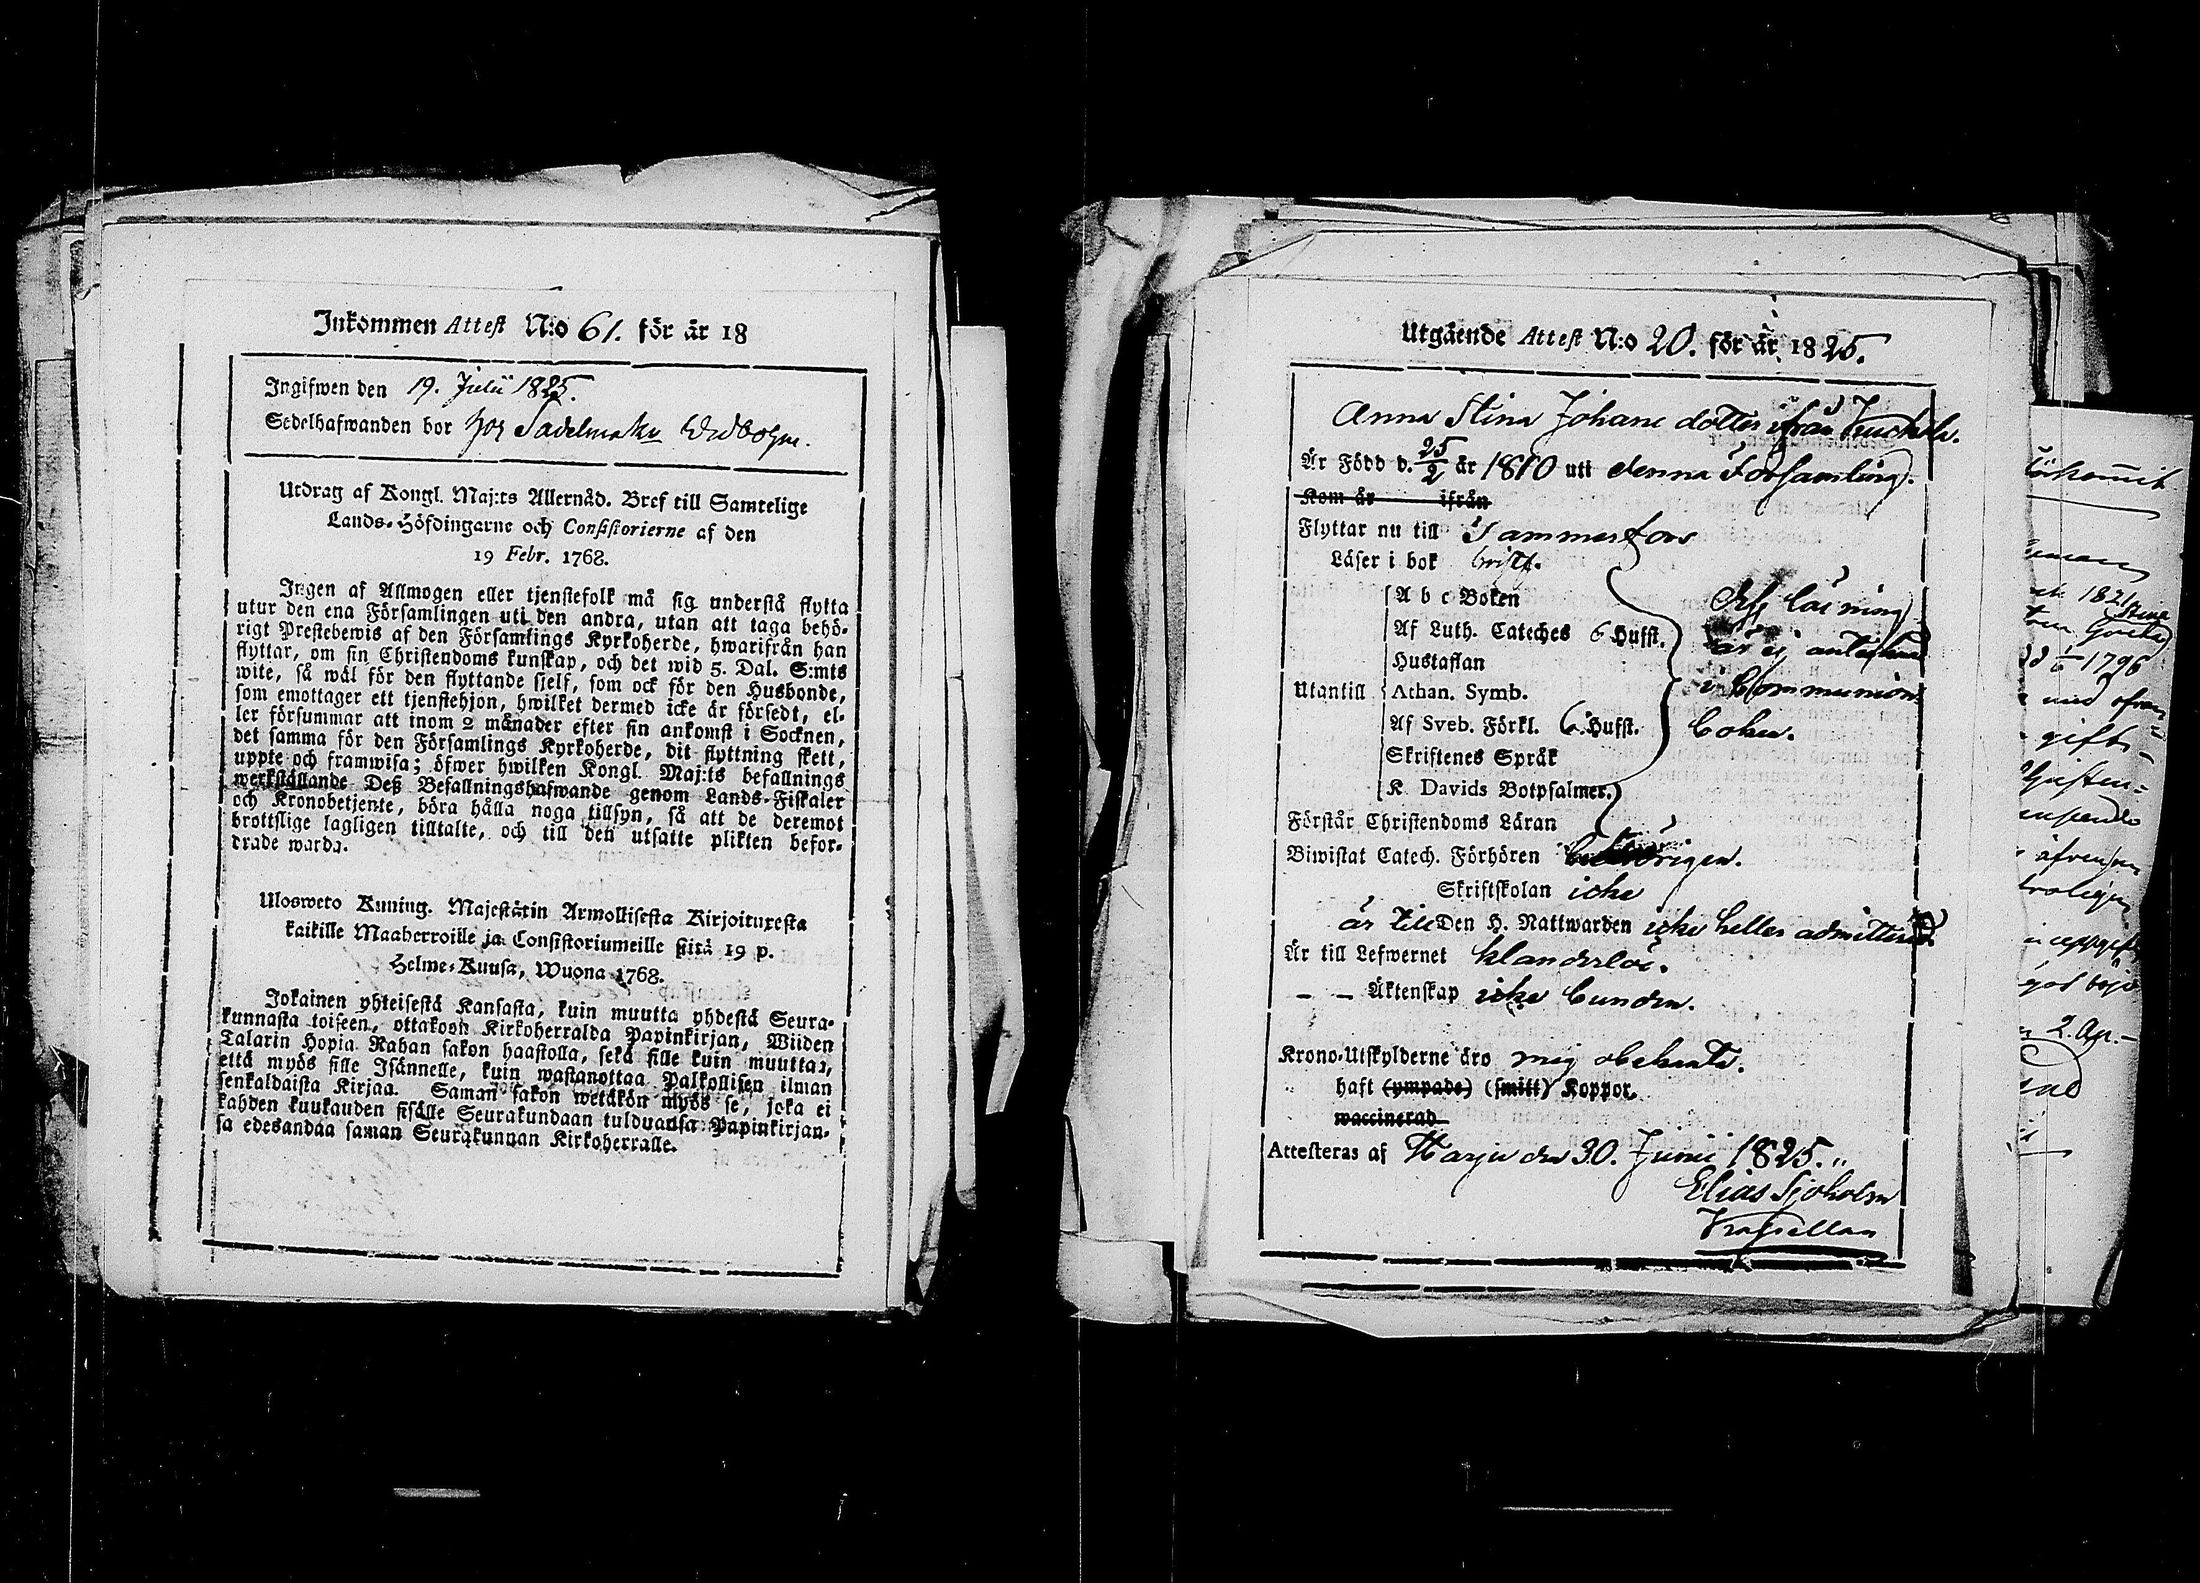 Inkommen Attest N:o 61. för år 18
Ingifwen den 19. Julii 1825.
Sedelhafwanden bor hos Sadelmak
Utdrag af Kongl. Maj:ts Allernåd. Bref till Samtelige
Lands-Höfdingarne och Consistorierne af den
19 Febr. 1768.
Ingen af Allmogen eller tjenstefolk må sig understå flytta
utur den ena Församlingen uti den andra, utan att taga behö-
rigt Prestebewis af den Församlings Kyrkoherde, hwarifrån han
flyttar, om sin Christendoms kunskap, och det wid 5. Dal. S:mts
wite, så wäl för den flyttande sjelf, som ock för den Husbonde,
som emottager ett tjenstehjon, hwilket dermed icke är försedt, el-
ler försummar att inom 2 månader efter sin ankomst i Socknen,
det samma för den Församlings Kyrkoherde, dit flyttning skett,
uppte och framwisa; öfwer hwilken Kongl. Maj:ts befallnings
werkställande Deß Befallningshafwande genom Lands-Fiskaler
och Kronobetjente, böra hålla noga tillsyn, så att de deremot
brottslige lagligen tilltalte, och till den utsatte plikten befor-
drade warda.
Ulosweto Kuning. Majestätin Armollisesta Kirjoituxesta
kaikille Maaherroille ja Consistoriumeille siitä 19 p.
Helme-Kuusa, Wuona 1768.
Jokainen yhteisestä Kansasta, kuin muutta yhdestä Seura-
kunnasta toiseen, ottakoon Kirkoherralda Papinkirjan, Wiiden
Talarin Hopia Rahan sakon haastolla, sekä sille kuin muuttaa,
että myös sille Isännelle, kuin wastanottaa Palkollisen ilman
senkaldaista Kirjaa. Saman sakon wetäkön myös se, joka ei
kahden kuukauden sisälle Seurakundaan tulduansa Papinkirjan-
sa edesandaa saman Seurakunnan Kirkoherralle.
Utgående Attest N:o 20. för år 1825.
Anna Stina Johans dotter ifrån
Är Född d. 25/2 år 1810 uti denna Församling.
Kom år ifrån
Flyttar nu till Tammerfors
Läser i bok
A b c Boken
Af Luth. Cateches 6 Hufst.
Hustaflan
Utantill Athan. Symb.
Af Sveb. Förkl. 6 Hufst.
Skriftenes Språk
K. Davids Botpsalmer.
läsning
är ej antecknad
i Communion
boken.
Förstår Christendoms Läran
Biwistat Catech. Förhören behörigen.
Skriftskolan icke
är till Den H. Nattwarden icke heller admitterad.
Är till Lefwernet klanderlös.
– – Äktenskap icke bunden.
Krono-Utskylderne äro mig obekanta.
haft (ympade) (smitt) Koppor.
waccinerad
Attesteras af Harju den 30. Junii 1825.
Elias Sjöholm
1821
1796
gift
2. Ap.